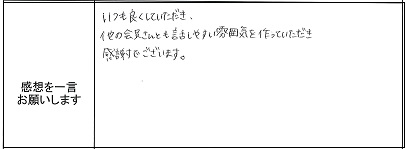 いつも良くしていただき、
他の会員さんとも話しやすい雰囲気を作っていただき
感謝でございます。
感想を一言
お願いします